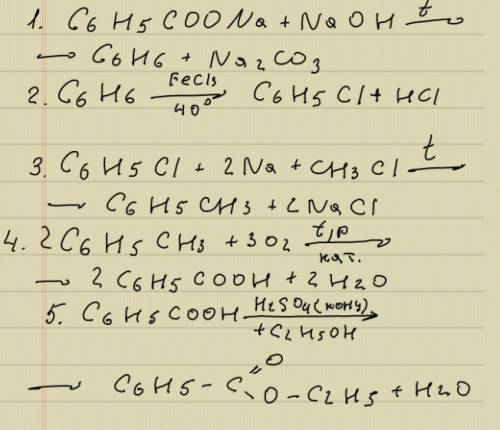 1. C6H5COONa + NaOH t→
→ C6H6 + Na2CO3
2. C6H6 FeCl3/40°→ C6H5Cl + HCl
3. C6H5Cl + 2Na + CH3Cl t→
→ C6H5CH3 + 2NaCl
4. 2C6H5CH3 + 3O2 t,p/кат.→
→ 2C6H5COOH + 2H2O
5. C6H5COOH H2SO4(конц)/+C2H5OH→
→ C6H5-C(=O)-O-C2H5 + H2O